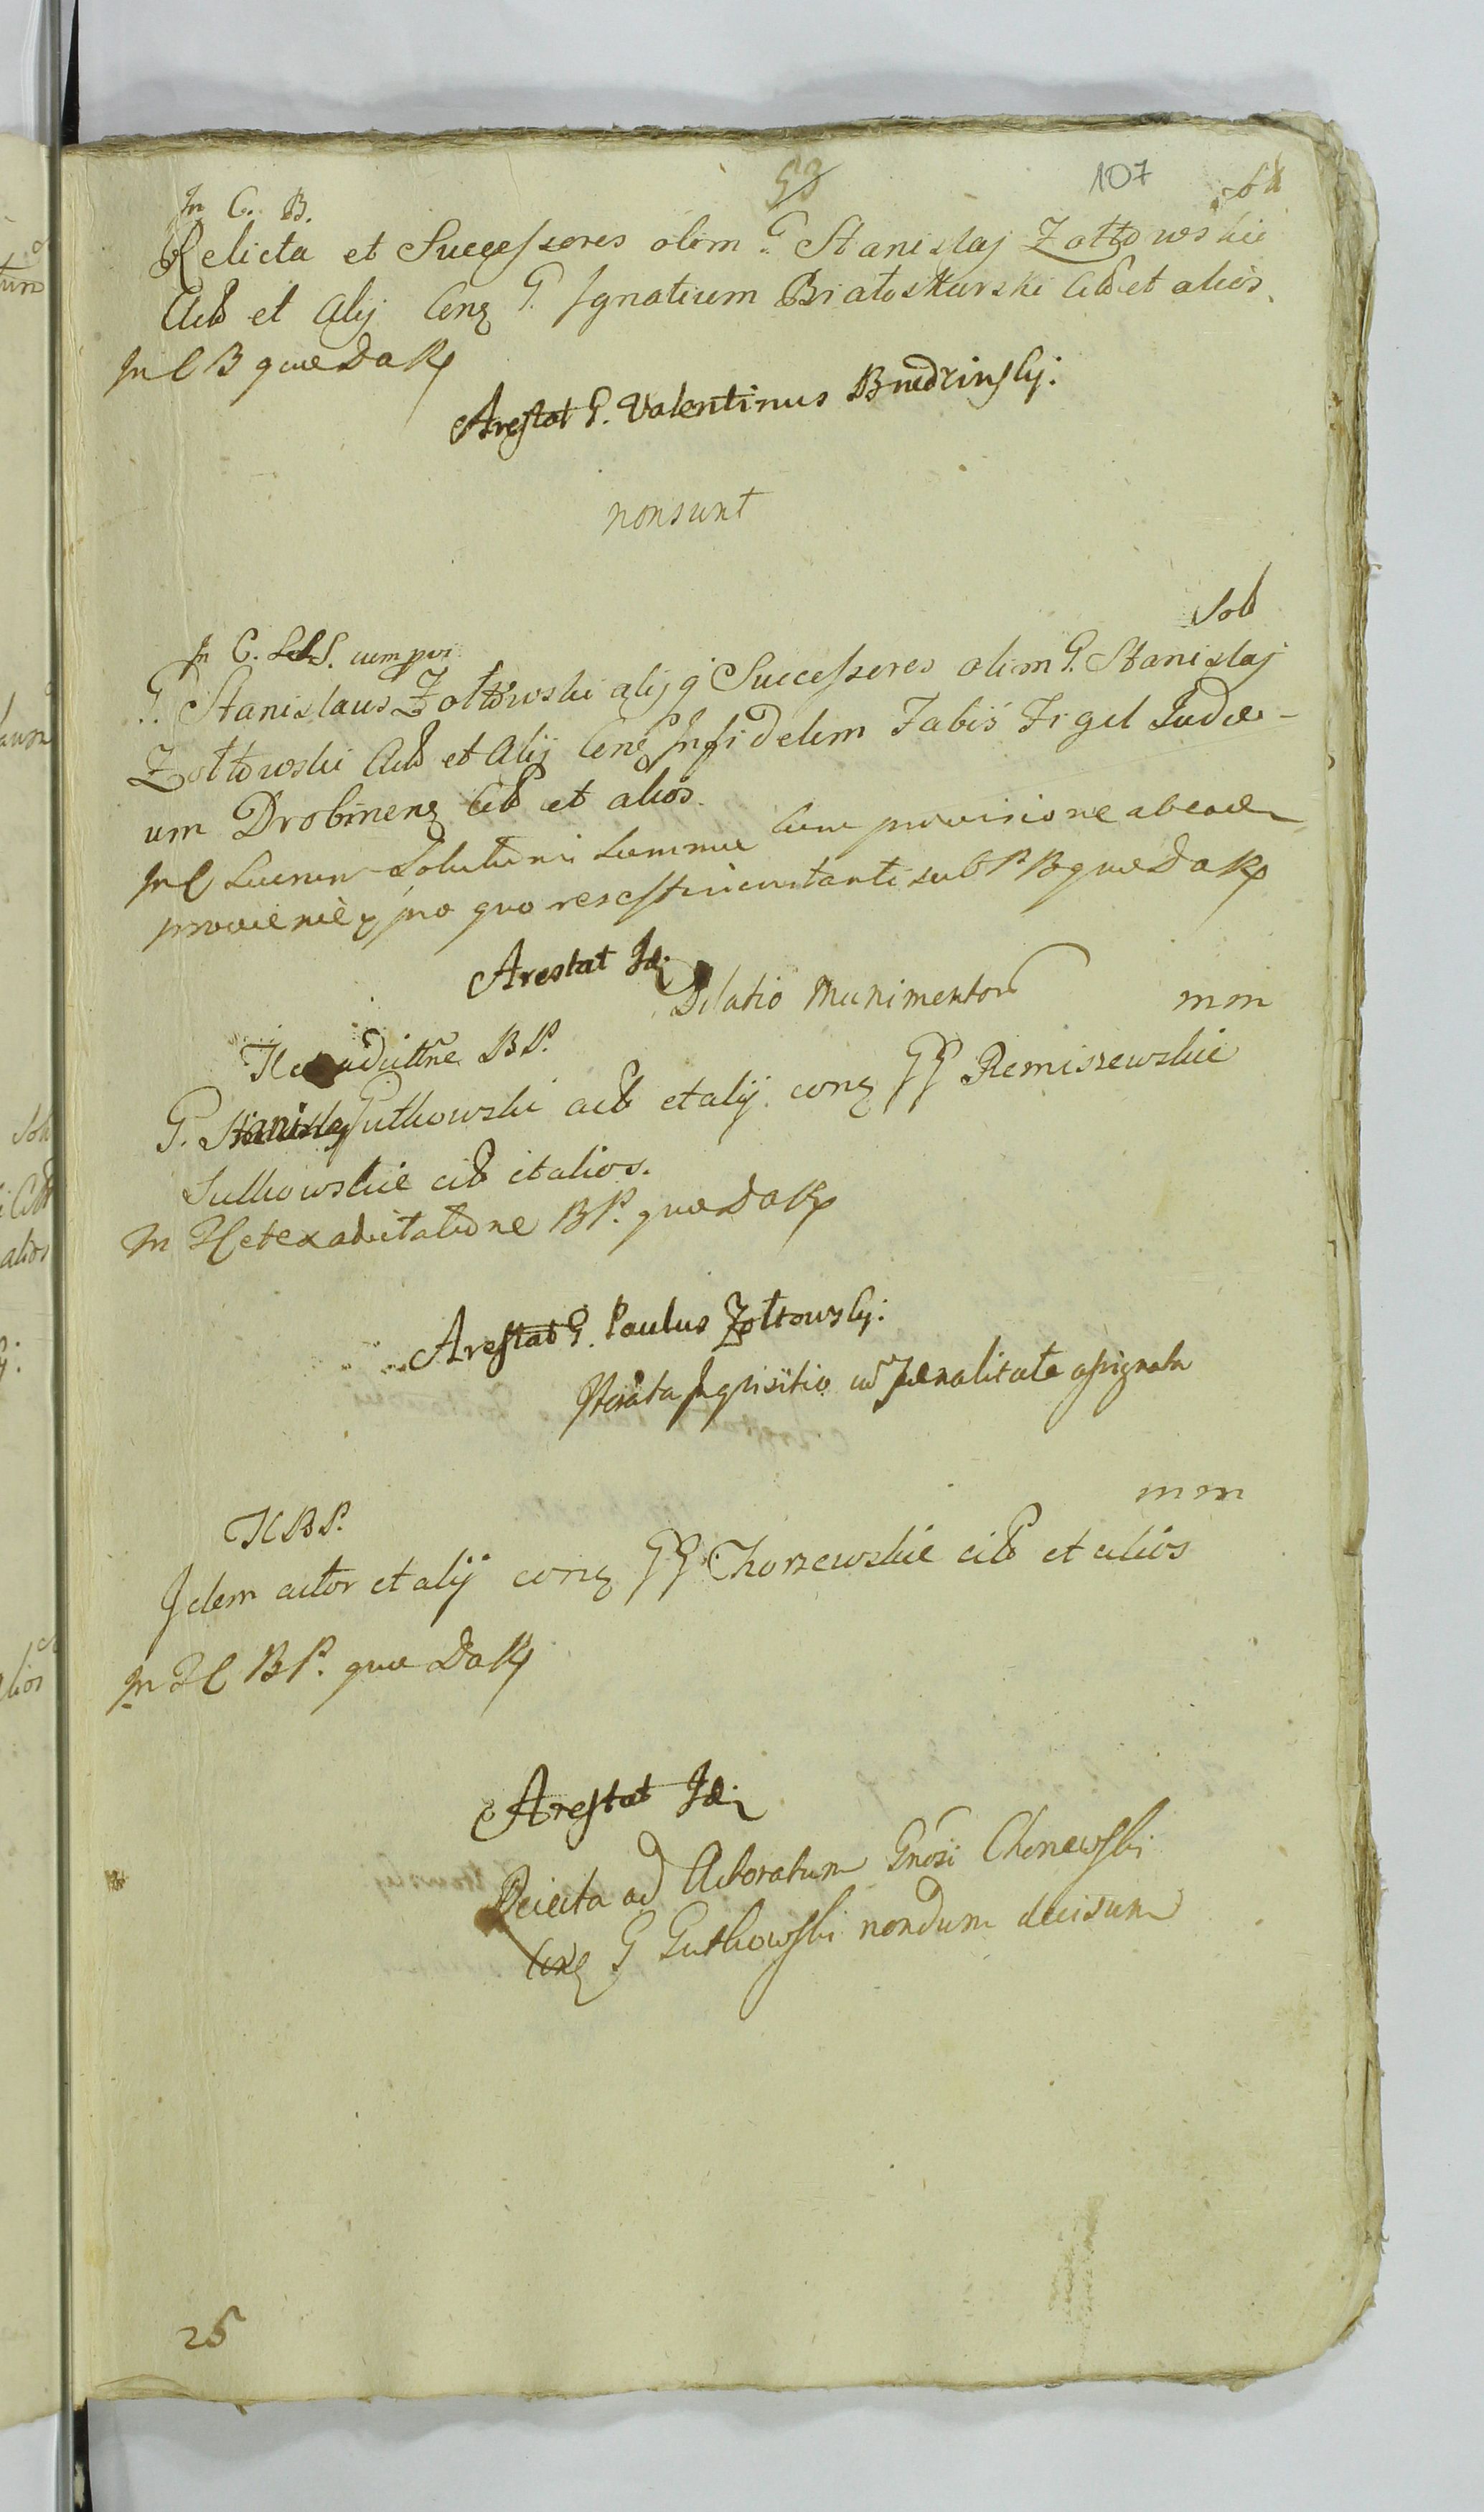 53
107
In C. B.
Relicta et Successores olim G. Stanislaj Zołtowskie
Actõ et Alij Conq G. Ignatium Białoskurski Citõ et alios
In C B que Da Rp
Arestat G. Valentinus Bnedzinsky.
non sunt
Sol
In C. S. cum pvi
G. Stanislaus Zołtowski alijq Successores olim G. Stanislaj
Zołtowski Actõ et Alij Conq Infidelem Fabis Figel Judæ-
um Drobinenq Citõ et alios.
In C Sum Solutõni summæ cum provisione ab eade
provenieq pro quo res est incontanti sub P B que Da Rp
Arestat Id.
Dilatio Munimentor
mm
B P.
G. Gutkowski actõ et alij conq GG Remiszewskie
Sulkowskie citõ et alios.
In Het exaduitatione B P. que Da Rp
Arestat G. Paulus Zołtowsky.
Iterata Inquisitio cũ Pænalitate assignata
mm
H B P.
Idem actor et alij conq GG Chorzewskie citõ et alios
In H B P. que Da Rp
Arestat Id.
Reiecta ad Actoratum Gnosi Chorzewski
Conq G Gutkowski nondum decisum
25